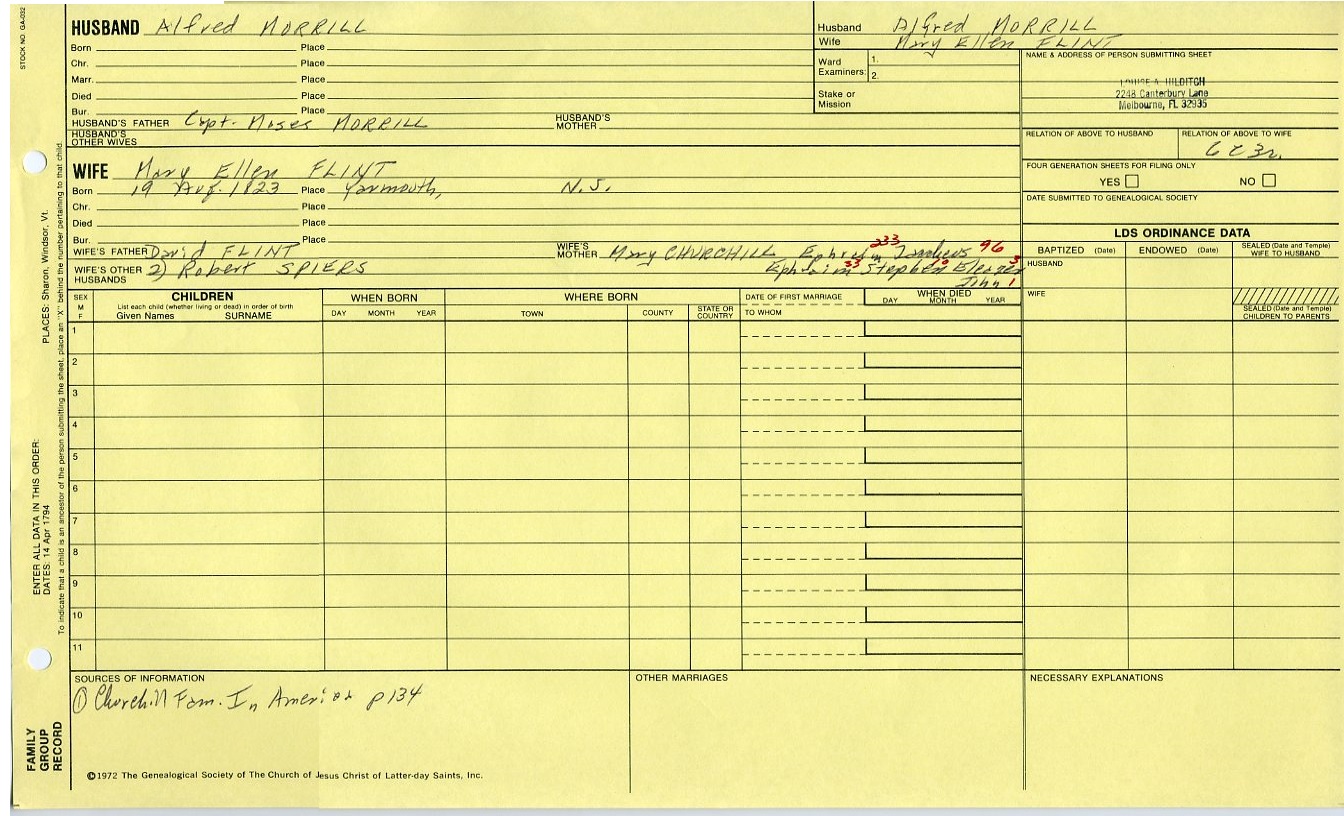 STOCK NO. GA-032
HUSBAND Alfred MORRILL
Born Place
Chr. Place
Marr. Place
Died Place
Bur. Place
HUSBAND'S FATHER Capt. Moses MORRILL HUSBAND'S MOTHER
HUSBAND'S OTHER WIVES
Husband Alfred MORRILL
Wife Mary Ellen FLINT
Ward Examiners: 1.
2.
Stake or Mission
NAME & ADDRESS OF PERSON SUBMITTING SHEET
LOUISE A. HILDITCH
2248 Canterbury Lane
Melbourne, FL 32935
RELATION OF ABOVE TO HUSBAND RELATION OF ABOVE TO WIFE
6C3r.
FOUR GENERATION SHEETS FOR FILING ONLY
YES NO
DATE SUBMITTED TO GENEALOGICAL SOCIETY
WIFE Mary Ellen FLINT
Born 19 Aug. 1823 Place Yarmouth, N.S.
Chr. Place
Died Place
Bur. Place
WIFE'S FATHER David FLINT WIFE'S MOTHER Mary CHURCHILL Ephraim 233 96
WIFE'S OTHER HUSBANDS 2) Robert SPIERS Ephraim 33 Stephen Eleazer 3
John 1
LDS ORDINANCE DATA
BAPTIZED (Date) ENDOWED (Date) SEALED (Date and Temple) WIFE TO HUSBAND
HUSBAND
WIFE
SEALED (Date and Temple) CHILDREN TO PARENTS
SEX M F
CHILDREN
List each child (whether living or dead) in order of birth
Given Names SURNAME
WHEN BORN
DAY MONTH YEAR
WHERE BORN
TOWN COUNTY STATE OR COUNTRY
DATE OF FIRST MARRIAGE
TO WHOM
WHEN DIED
DAY MONTH YEAR
1
2
3
4
5
6
7
8
9
10
11
SOURCES OF INFORMATION
① Churchill Fam. In America p 134
OTHER MARRIAGES
NECESSARY EXPLANATIONS
©1972 The Genealogical Society of The Church of Jesus Christ of Latter-day Saints, Inc.
FAMILY GROUP RECORD
ENTER ALL DATA IN THIS ORDER:
DATES: 14 Apr 1794 PLACES: Sharon, Windsor, Vt.
To indicate that a child is an ancestor of the person submitting the sheet, place an "X" behind the number pertaining to that child.